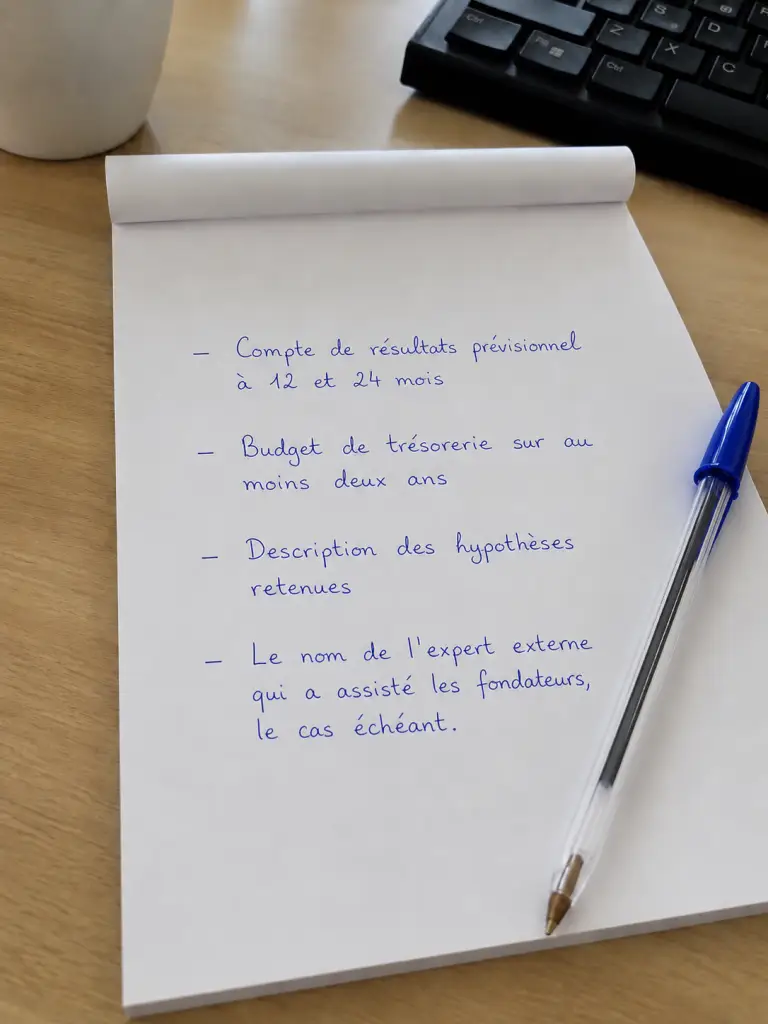 – Compte de résultats prévisionnel
à 12 et 24 mois
– Budget de trésorerie sur au
moins deux ans
– Description des hypothèses
retenues
– Le nom de l'expert externe
qui a assisté les fondateurs,
le cas échéant.
Ctrl
Z
S
D
X
C
Ctrl